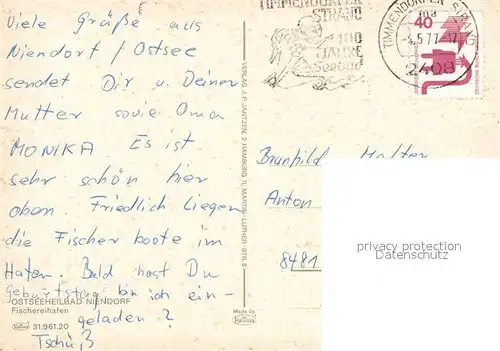 Viele Grüße aus
Niendorf / Ostsee
sendet Dir u. Deiner
Mutter sowie Oma
MONIKA Es ist
sehr schön hier
oben. Friedlich liegen
die Fischer boote im
Hafen. Bald hast Du
Geburtstag bin ich ein-
geladen?
Tschüß
OSTSEEHEILBAD NIENDORF
Fischereihafen
31.961.20
VERLAG J.P. JANTZEN, 2 HAMBURG 1, MARTIN-LUTHER-STR. 8
Made by
TIMMENDORFER
STRAND
100
JAHRE
Seebad
TIMMENDORFER STRAND
ma
-4.5.77-17
2408
40
DEUTSCHE BUNDESPOST
Brunhild
Anton
8481
privacy protection
Datenschutz